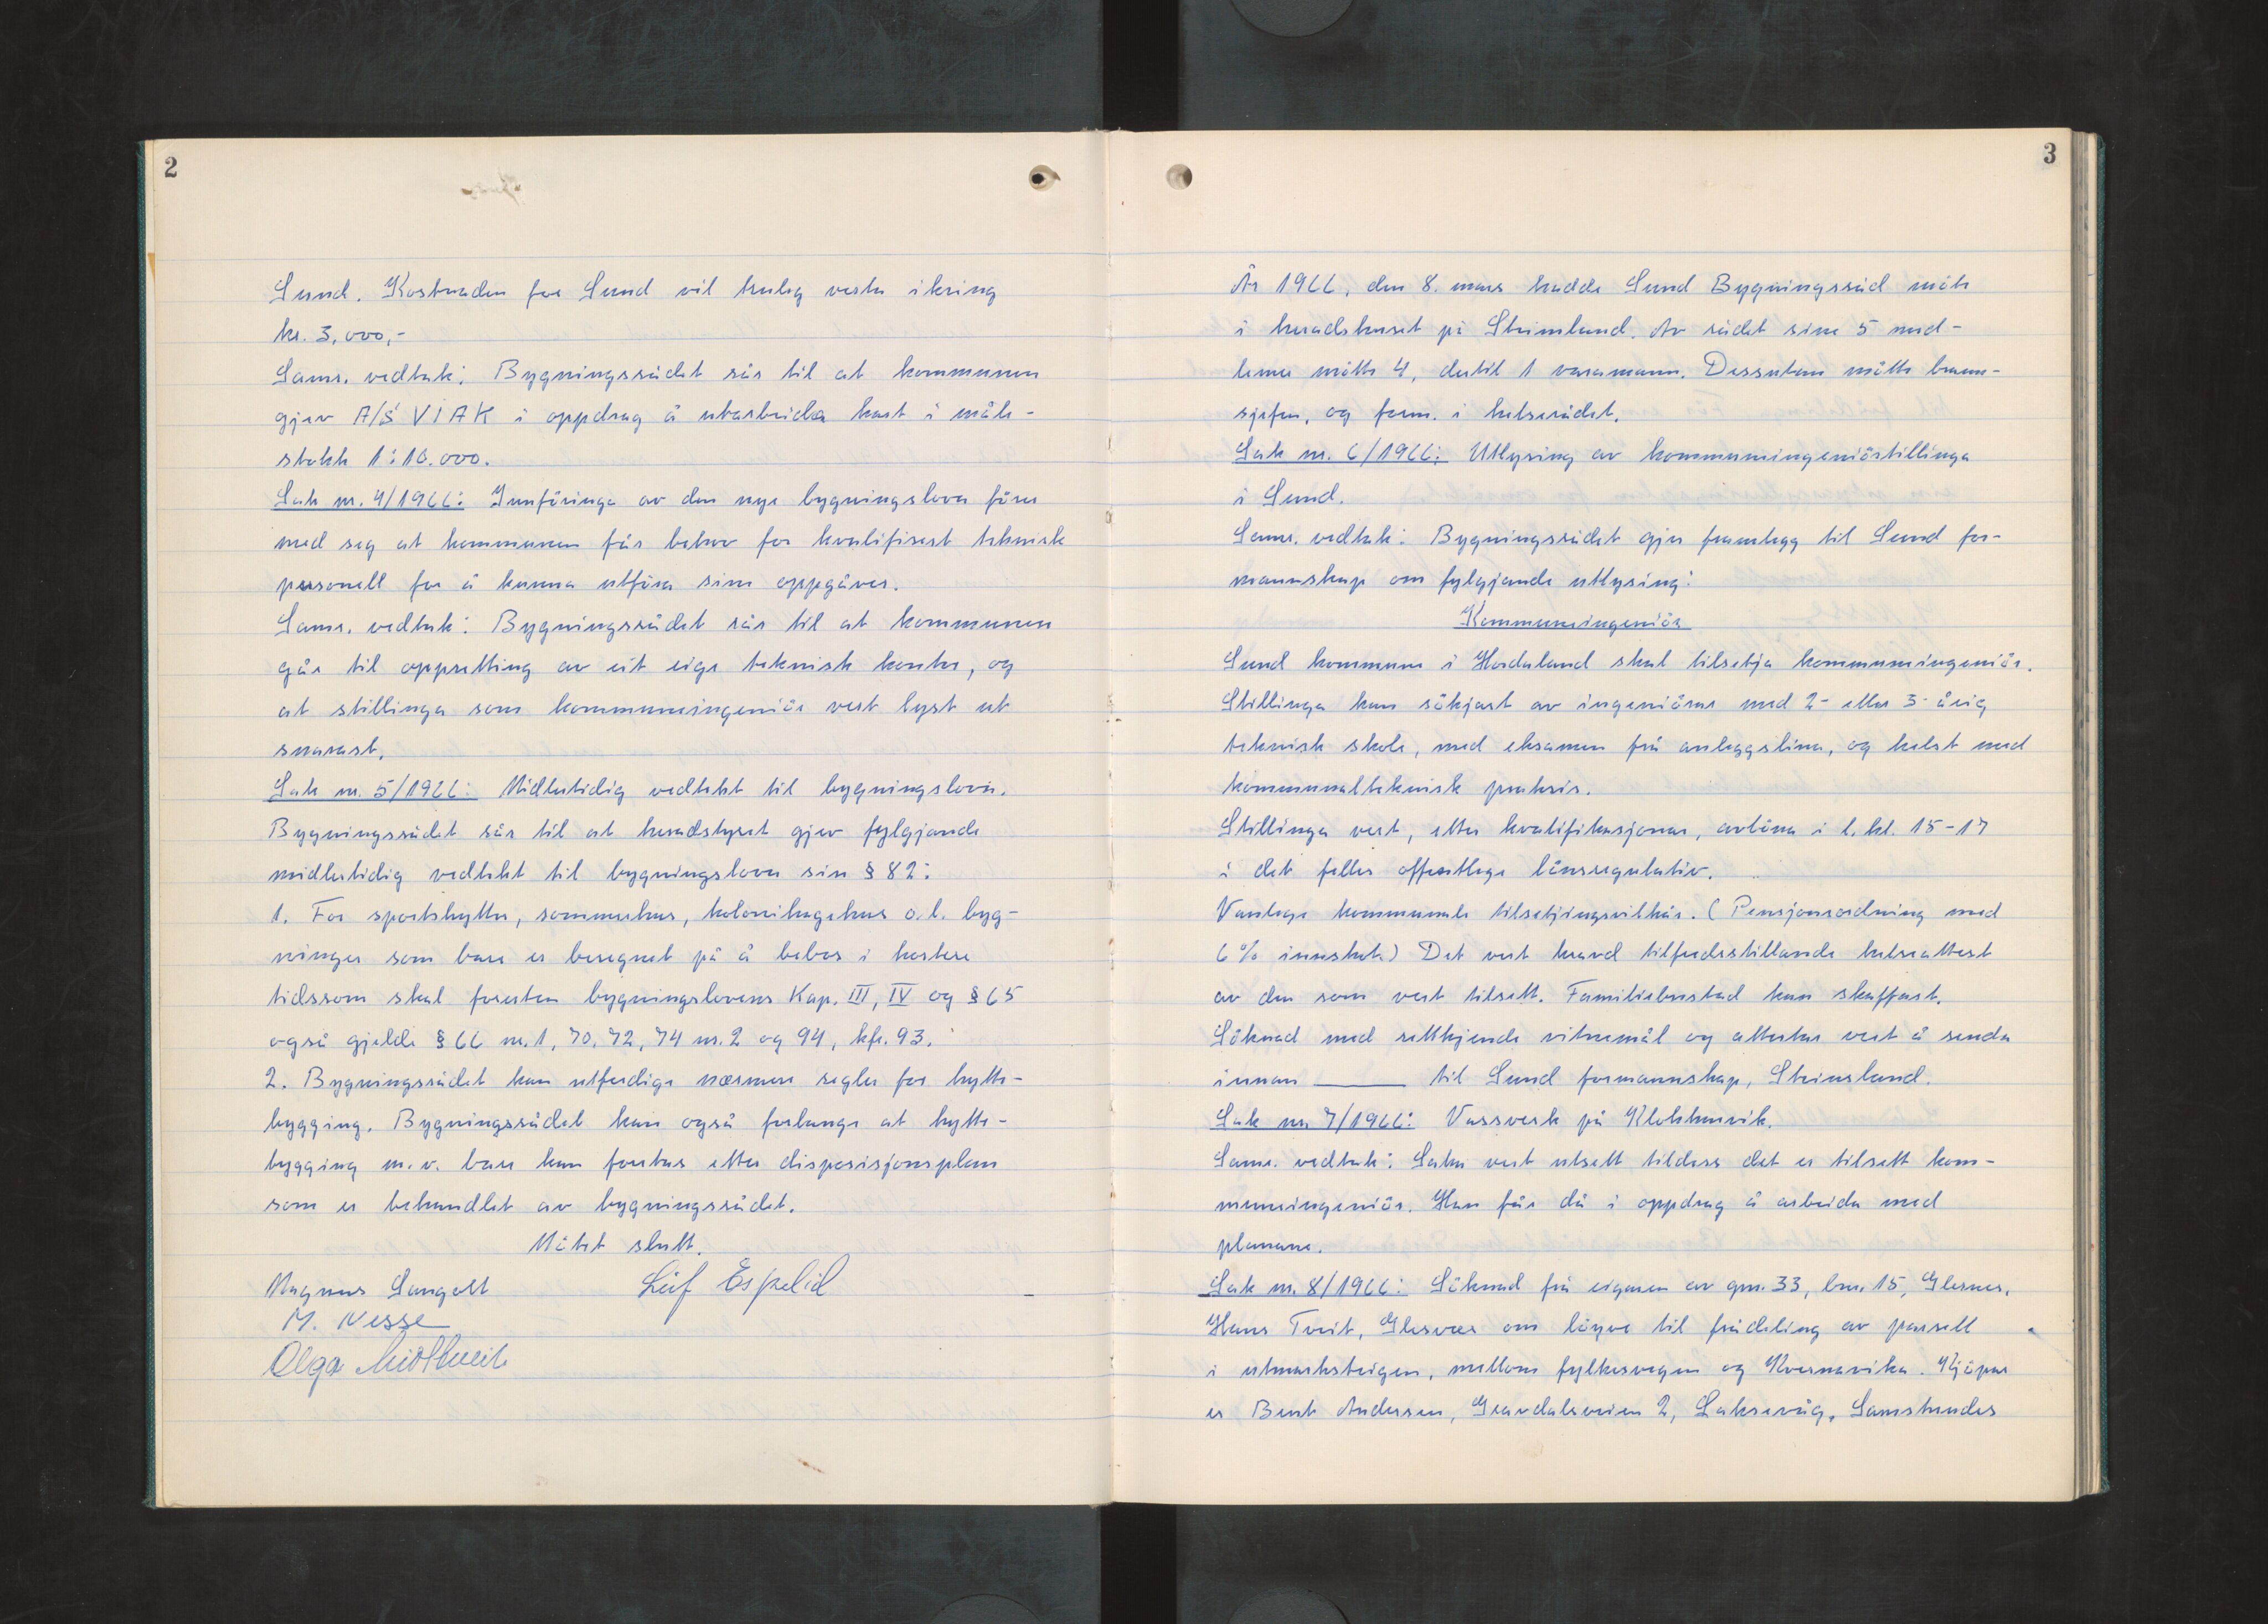 2
Sund. Kostnaden for Sund vil truleg verta ikring
kr. 3.000,-
Sams. vedtak: Bygningsrådet rår til at kommunen
gjev A/S VIAK i oppdrag å utarbeida kart i måle-
stokk 1:10.000.
Sak nr. 4/1966: Innföringa av den nye bygningslova förer
med seg at kommunen får behov for kvalifisert teknisk
personell for å kunna utföra sine oppgåver.
Sams. vedtak: Bygningsrådet rår til at kommunen
går til oppretting av eit eige teknisk kontor, og
at stillinga som kommuneingeniör vert lyst ut
snarast.
Sak nr. 5/1966: Midlertidig vedtekt til bygningslova.
Bygningsrådet rår til at heradstyret gjev fylgjande
midlertidig vedtekt til bygningslova sin § 82:
1. For sportshytter, sommerhus, kolonihagehus o.l. byg-
ninger som bare er beregnet på å bebos i kortere
tidssom skal foruten bygningslovens Kap. III, IV og § 65
også gjelde § 66 nr. 1, 70, 72, 74 nr. 2 og 94, kfr. 93.
2. Bygningsrådet kan utferdige nærmere regler for hytte-
bygging. Bygningsrådet kan også forlange at hytte-
bygging m.v. bare kan foretas etter disposisjonsplan
som er behandlet av bygningsrådet.
Mötet slutt.
Magnus Sangolt Leif Espelid
M. Nesse
Olga Midttveit
3
År 1966, den 8. mars hadde Sund Bygningsråd möte
i heradshuset på Steinsland. Av rådet sine 5 med-
lemer mötte 4, dertil 1 varamann. Dessutan mötte brann-
sjefen, og form. i helserådet.
Sak nr. 6/1966: Utlysing av kommuneingeniörstillinga
i Sund.
Sams. vedtak: Bygningsrådet gjer framlegg til Sund for-
mannskap om fylgjande utlysing:
Kommuneingeniör
Sund kommune i Hordaland skal tilsetja kommuneingeniör.
Stillinga kan sökjast av ingeniörar med 2- eller 3-årig
teknisk skole, med eksamen frå anleggslina, og helst med
kommunalteknisk praksis.
Stillinga vert, etter kvalifikasjonar, avlöna i l.kl. 15-17
i det felles offentlege lönsregulativ.
Vanlege kommunale tilsetjingsvilkår. (Pensjonsordning med
6% innskot.) Det vert kravd tilfredsstillande helseattest
av den som vert tilsett. Familiebustad kan skaffast.
Söknad med rettkjende vitnemål og attestar vert å senda
innan ——— til Sund formannskap, Steinsland.
Sak nr. 7/1966: Vassverk på Klokkarvik.
Sams. vedtak: Saka vert utsett tildess det er tilsett kom-
muneingeniör. Han får då i oppdrag å arbeida med
planane.
Sak nr. 8/1966: Söknad frå eigaren av gnr. 33, bnr. 15, Glesnes,
Hans Tveit, Glesvær om löyve til frådeling av parsell
i utmarksteigen, mellom fylkesvegen og Kvernavika. Kjöpar
er Bernt Andersen, Gravdalsveien 2, Laksevåg. Samstundes